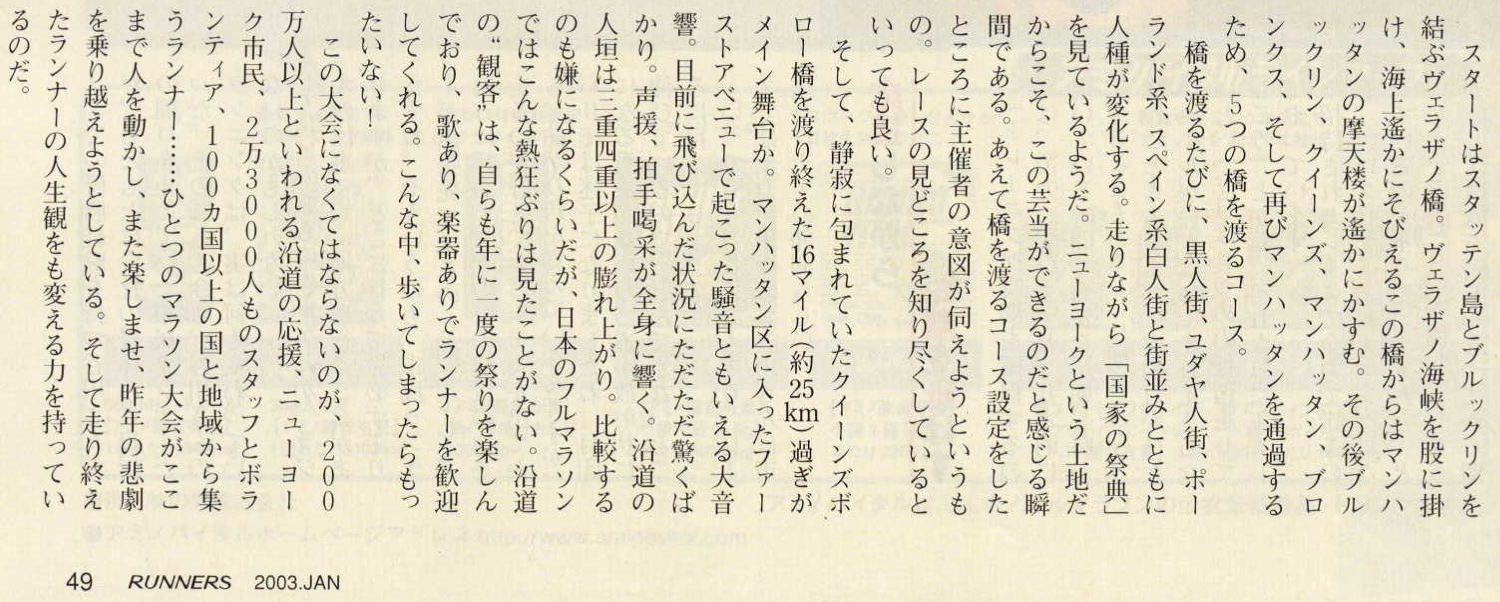 スタートはスタッテン島とブルックリンを
結ぶヴェラザノ橋。ヴェラザノ海峡を股に掛
け、海上遙かにそびえるこの橋からはマンハ
ッタンの摩天楼が遙かにかすむ。その後ブル
ックリン、クイーンズ、マンハッタン、ブロ
ンクス、そして再びマンハッタンを通過する
ため、5つの橋を渡るコース。
　橋を渡るたびに、黒人街、ユダヤ人街、ポー
ランド系、スペイン系白人街と街並みとともに
人種が変化する。走りながら「国家の祭典」
を見ているようだ。ニューヨークという土地だ
からこそ、この芸当ができるのだと感じる瞬
間である。あえて橋を渡るコース設定をした
ところに主催者の意図が伺えようというも
の。レースの見どころを知り尽くしていると
いっても良い。
　そして、静寂に包まれていたクイーンズボ
ロー橋を渡り終えた16マイル(約25km)過ぎが
メイン舞台か。マンハッタン区に入ったファー
ストアベニューで起こった騒音ともいえる大音
響。目前に飛び込んだ状況にただただ驚くば
かり。声援、拍手喝采が全身に響く。沿道の
人垣は三重四重以上の膨れ上がり。比較する
のも嫌になるくらいだが、日本のフルマラソン
ではこんな熱狂ぶりは見たことがない。沿道
の“観客”は、自らも年に一度の祭りを楽しん
でおり、歌あり、楽器ありでランナーを歓迎
してくれる。こんな中、歩いてしまったらもっ
たいない!
　この大会になくてはならないのが、200
万人以上といわれる沿道の応援、ニューヨー
ク市民、2万3000人ものスタッフとボラ
ンティア、100カ国以上の国と地域から集
うランナー……ひとつのマラソン大会がここ
まで人を動かし、また楽しませ、昨年の悲劇
を乗り越えようとしている。そして走り終え
たランナーの人生観をも変える力を持ってい
るのだ。
49 RUNNERS 2003.JAN